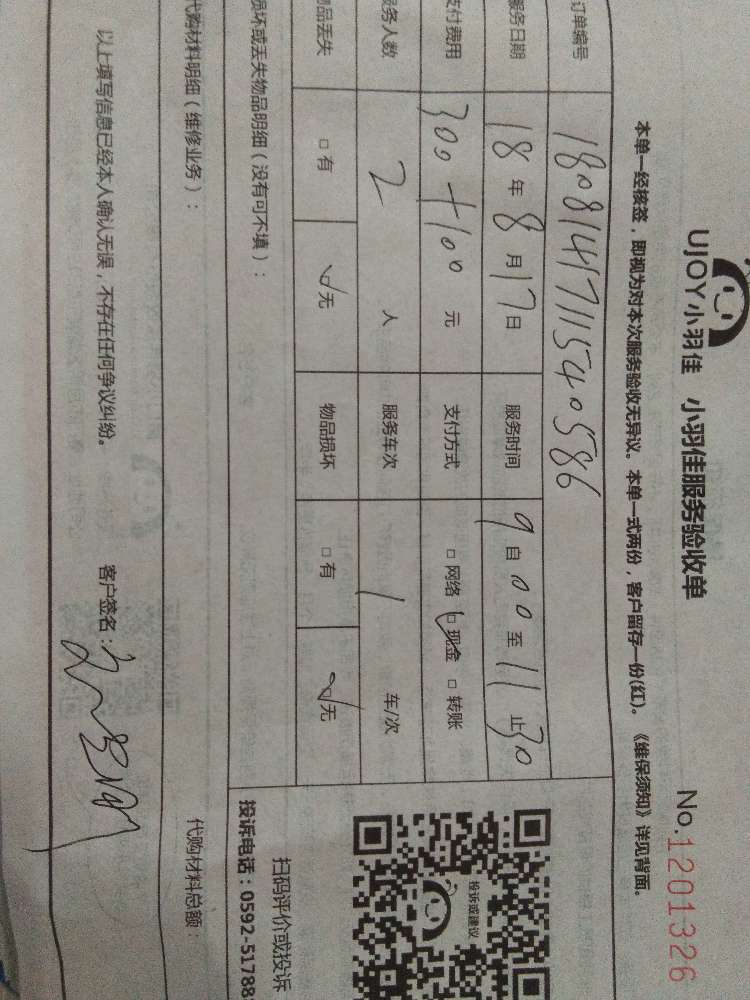 UJOY小羽佳 小羽佳服务验收单 No.1201326
本单一经核签，即视为对本次服务验收无异议。本单一式两份，客户留存一份(红)。《维保须知》详见背面。
订单编号 1808141711540586
服务日期 18年8月17日 服务时间 9自00至11止30
支付费用 300+100元 支付方式 □网络 ☑现金 □转账
服务人数 2人 服务车次 1车/次
物品丢失 □有 ☑无 物品损坏 □有 ☑无
投诉或建议
扫码评价或投诉
损坏或丢失物品明细（没有可不填）： 投诉电话：0592-51788
代购材料明细（维修业务）： 代购材料总额：
以上填写信息已经本人确认无误，不存在任何争议纠纷。 客户签名：